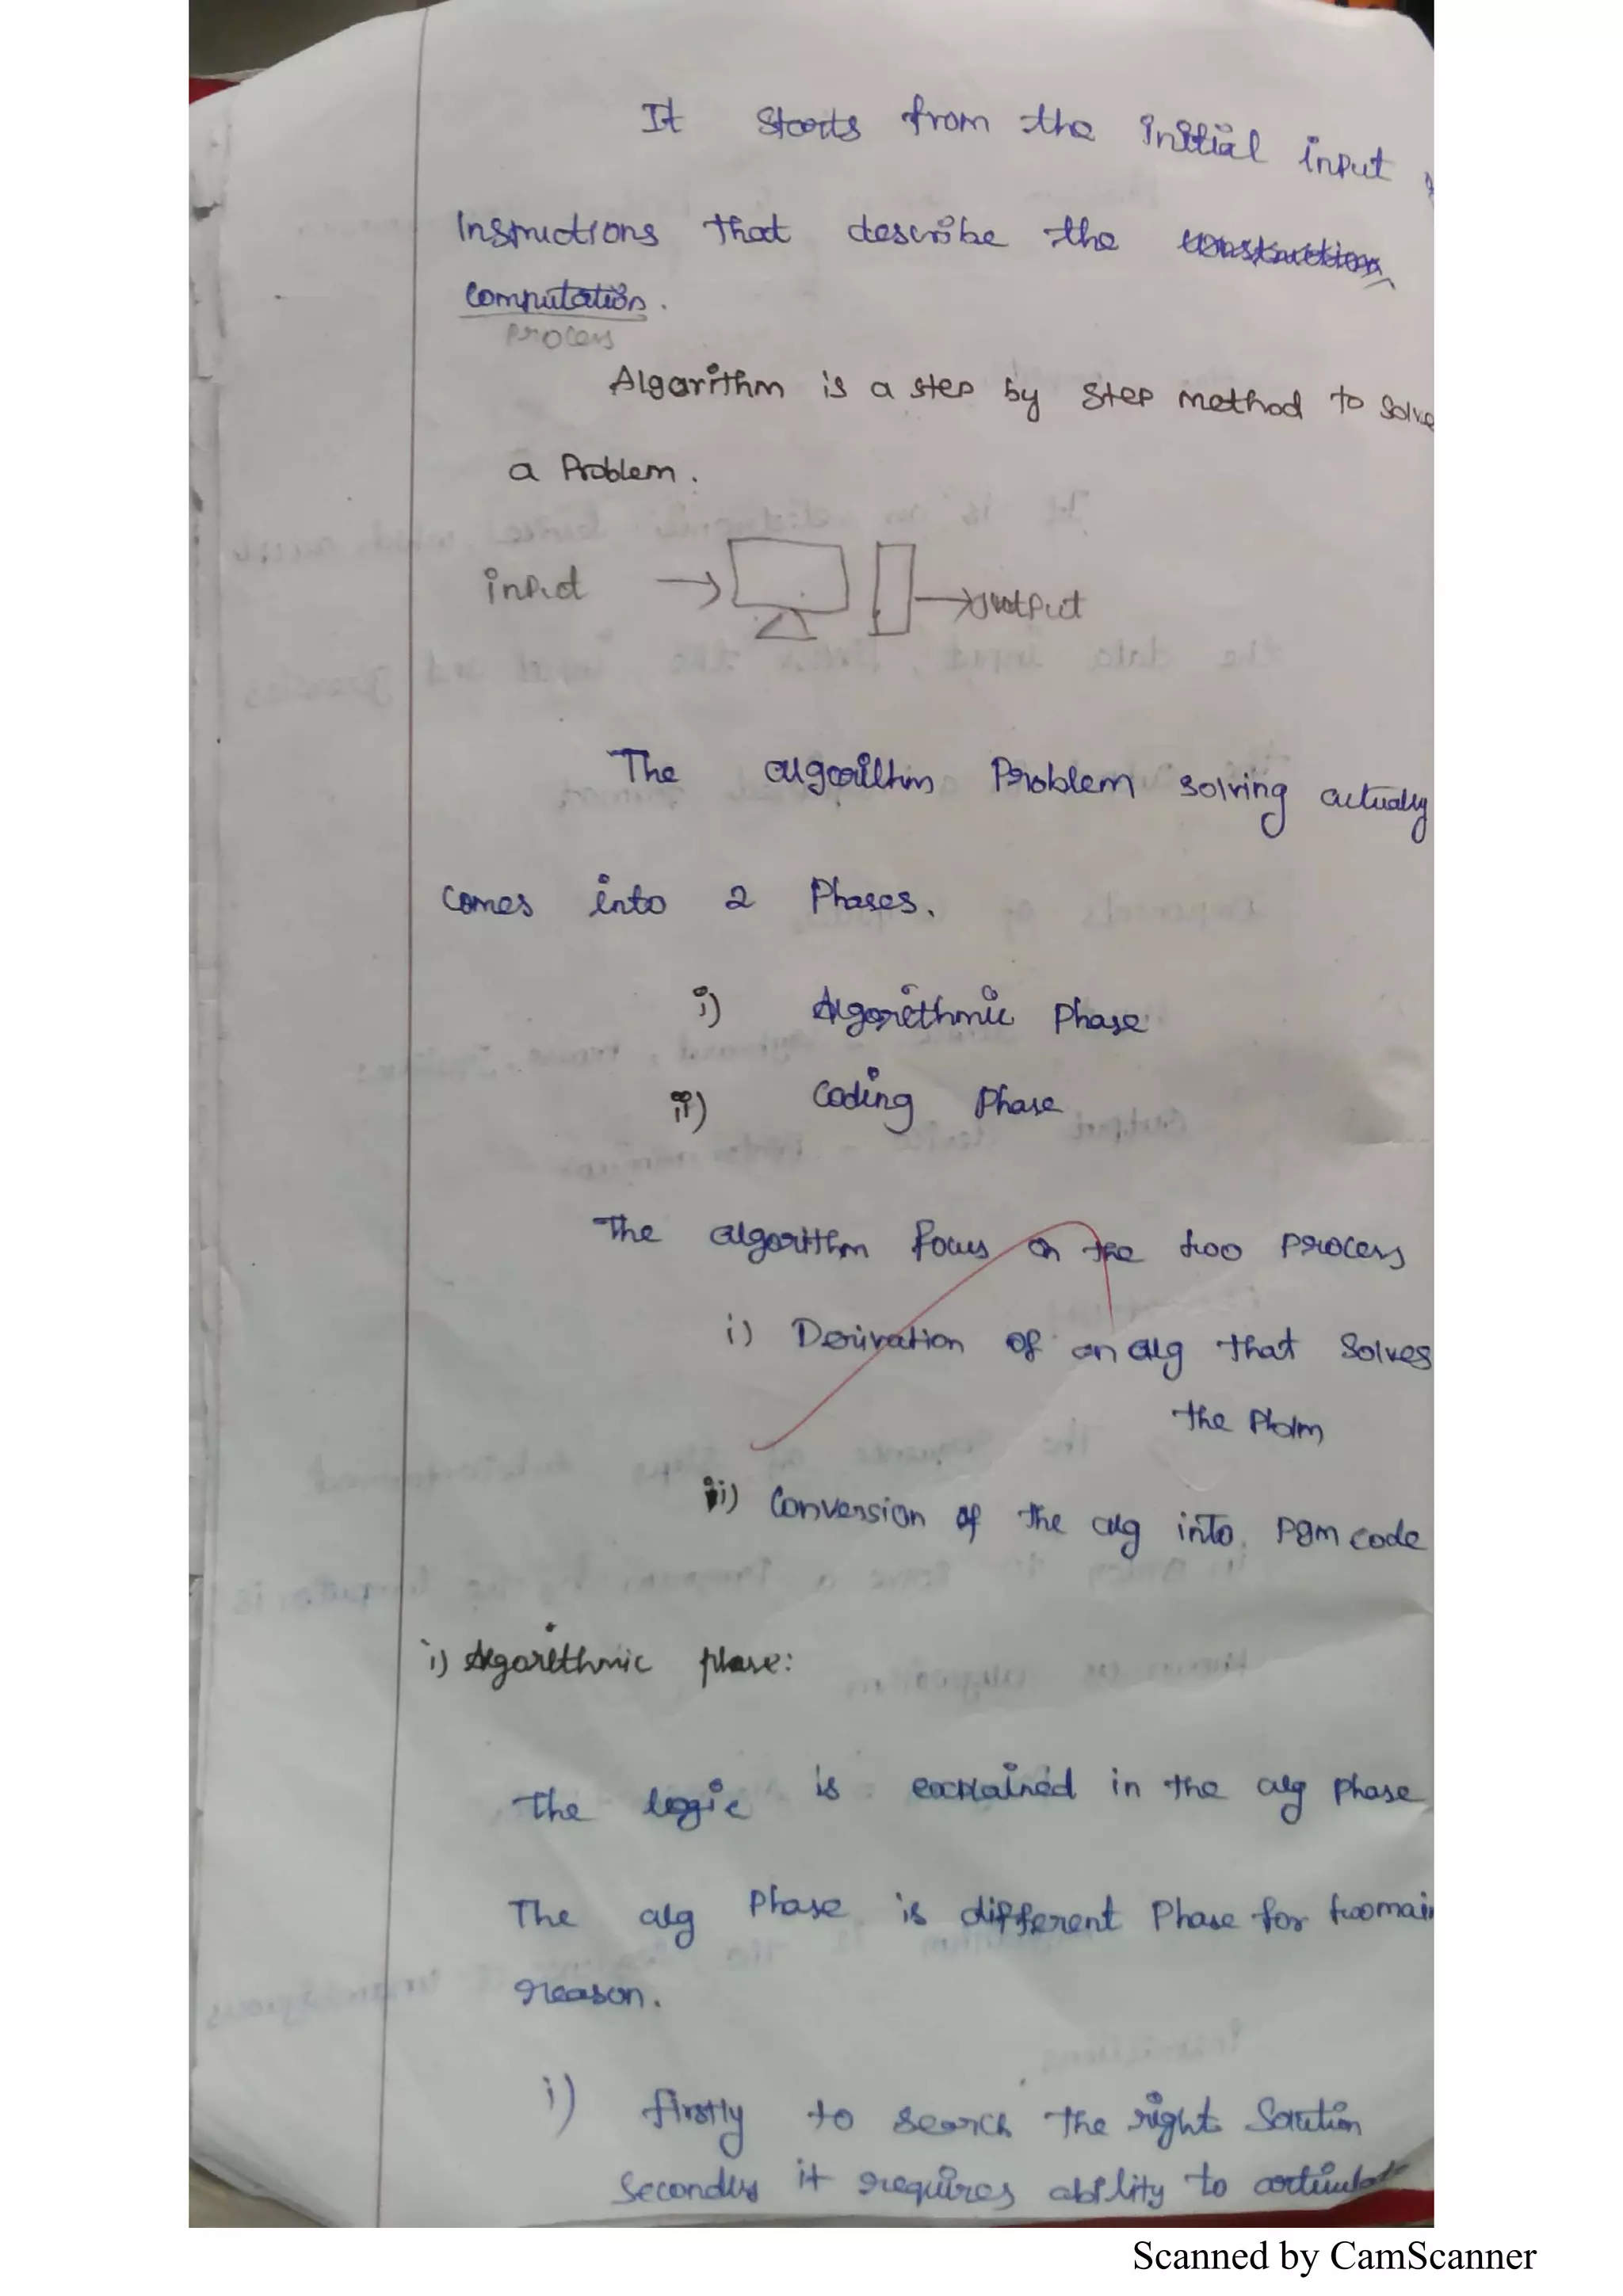 It starts from the initial input
Instructions that describe the
Computation.
process
Algorithm is a step by step method to solve
a Problem.
input → → output
The algorithm Problem solving actually
comes into 2 Phases.
i) Algorithmic Phase
ii) Coding Phase
The algorithm focus on the two process
i) Derivation of an alg that solves
the Pblm
ii) Conversion of the alg into Pgm code
i) Algorithmic phase:
The logic is explained in the alg phase
The alg Phase is different Phase for two main
reason.
i) firstly to search the right Solution
Secondly it requires ability to
Scanned by CamScanner